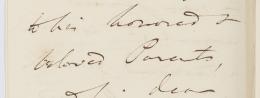 to his honored &
beloved Parents,
dear